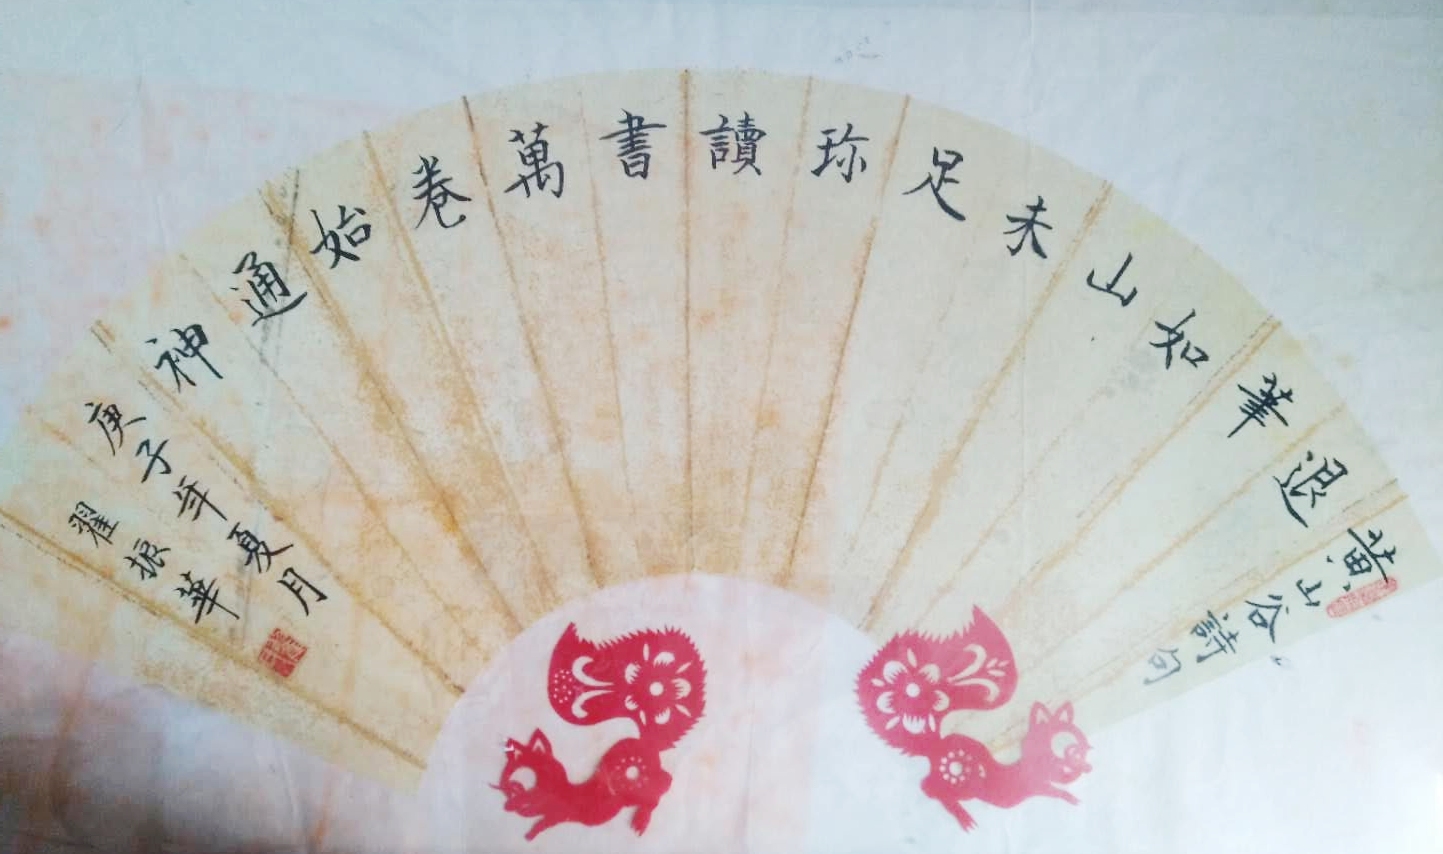 黃山谷詩句
退筆如山未足珎讀書萬卷始通神
庚子年夏月
翟振華